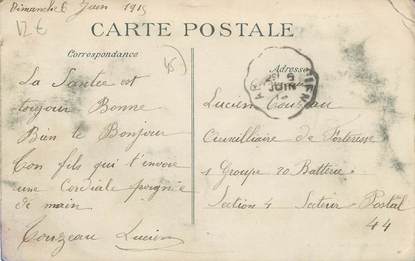 Dimanche 6 Juin 1915
12 €
CARTE POSTALE
Correspondance
45
Adresse
6
JUIN
La Santée est
toujour Bonne
Bien le Bonjour
Ton fils qui t'envoie
une Cordiale poignie
de main
Couzeau Lucien
Lucien Couzeau
Auxilliaire de Forteresse
1 Groupe 20 Batterie
Section 4 Secteur Postal
44